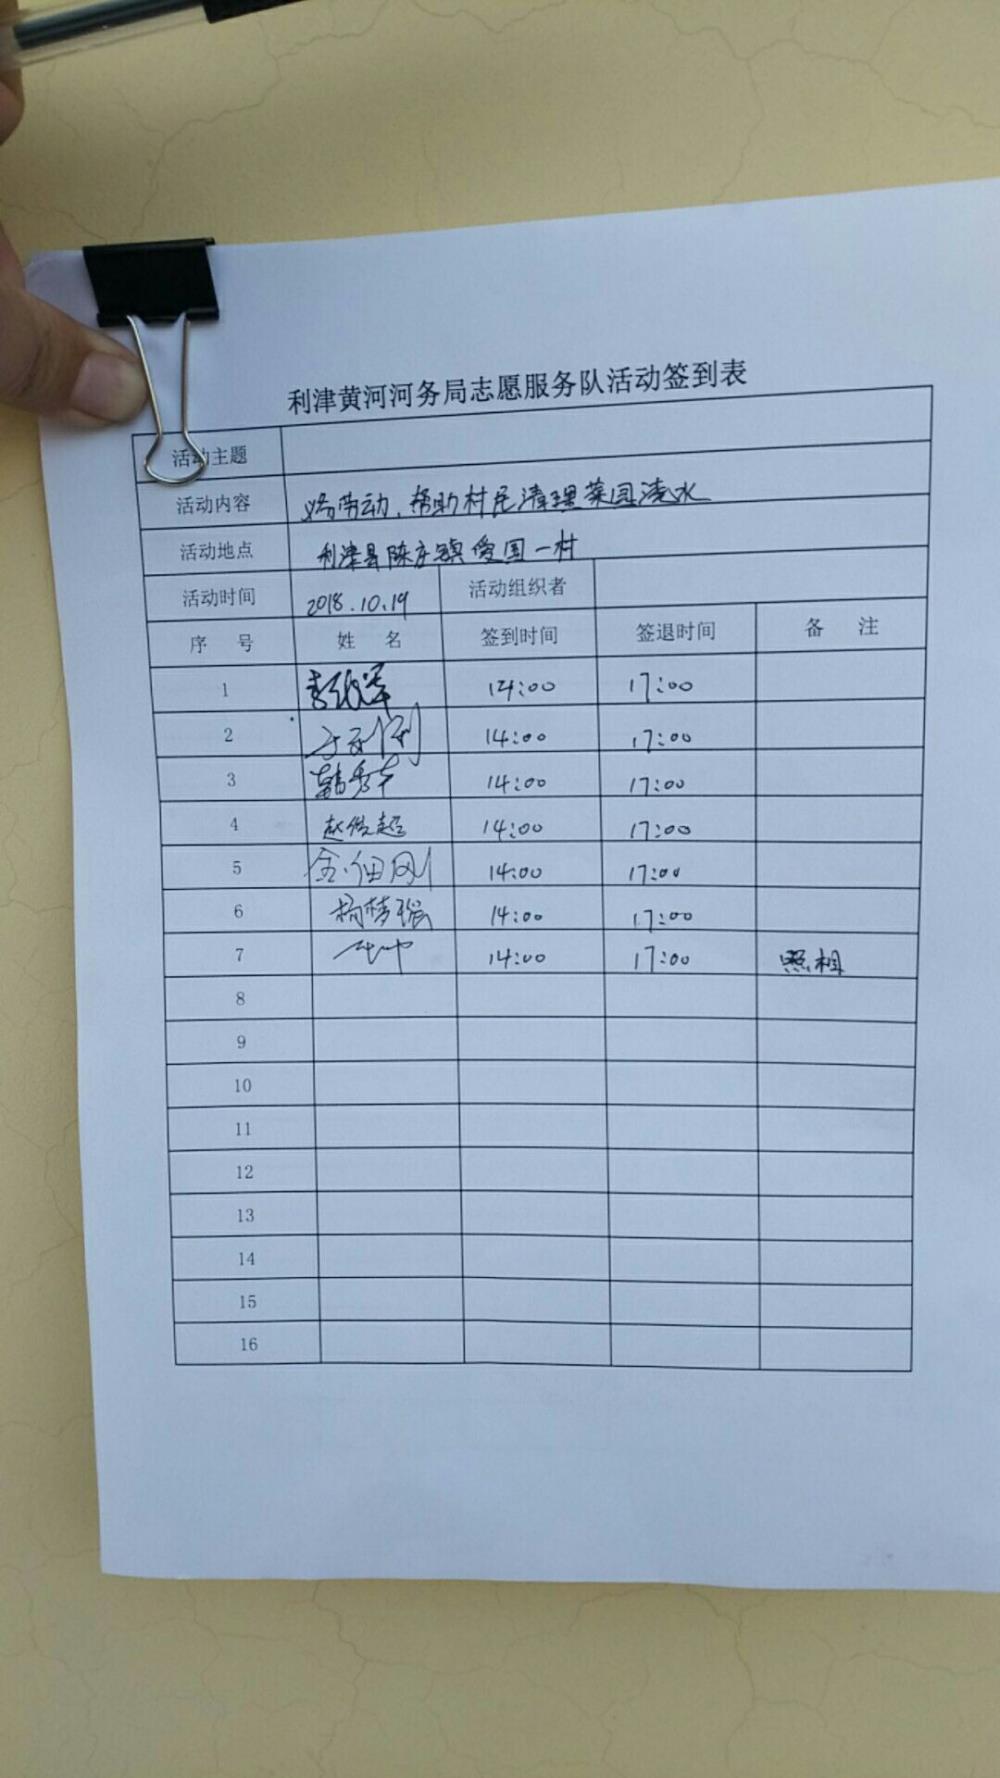 利津黄河河务局志愿服务队活动签到表
活动主题
活动内容 义务劳动，帮助村民清理菜园淤水
活动地点 利津县陈庄镇爱国一村
活动时间 2018.10.19 活动组织者
序 号 姓 名 签到时间 签退时间 备 注
1 14:00 17:00
2 14:00 17:00
3 韩秀 14:00 17:00
4 赵俊超 14:00 17:00
5 刚 14:00 17:00
6 杨梦瑶 14:00 17:00
7 14:00 17:00 照相
8
9
10
11
12
13
14
15
16